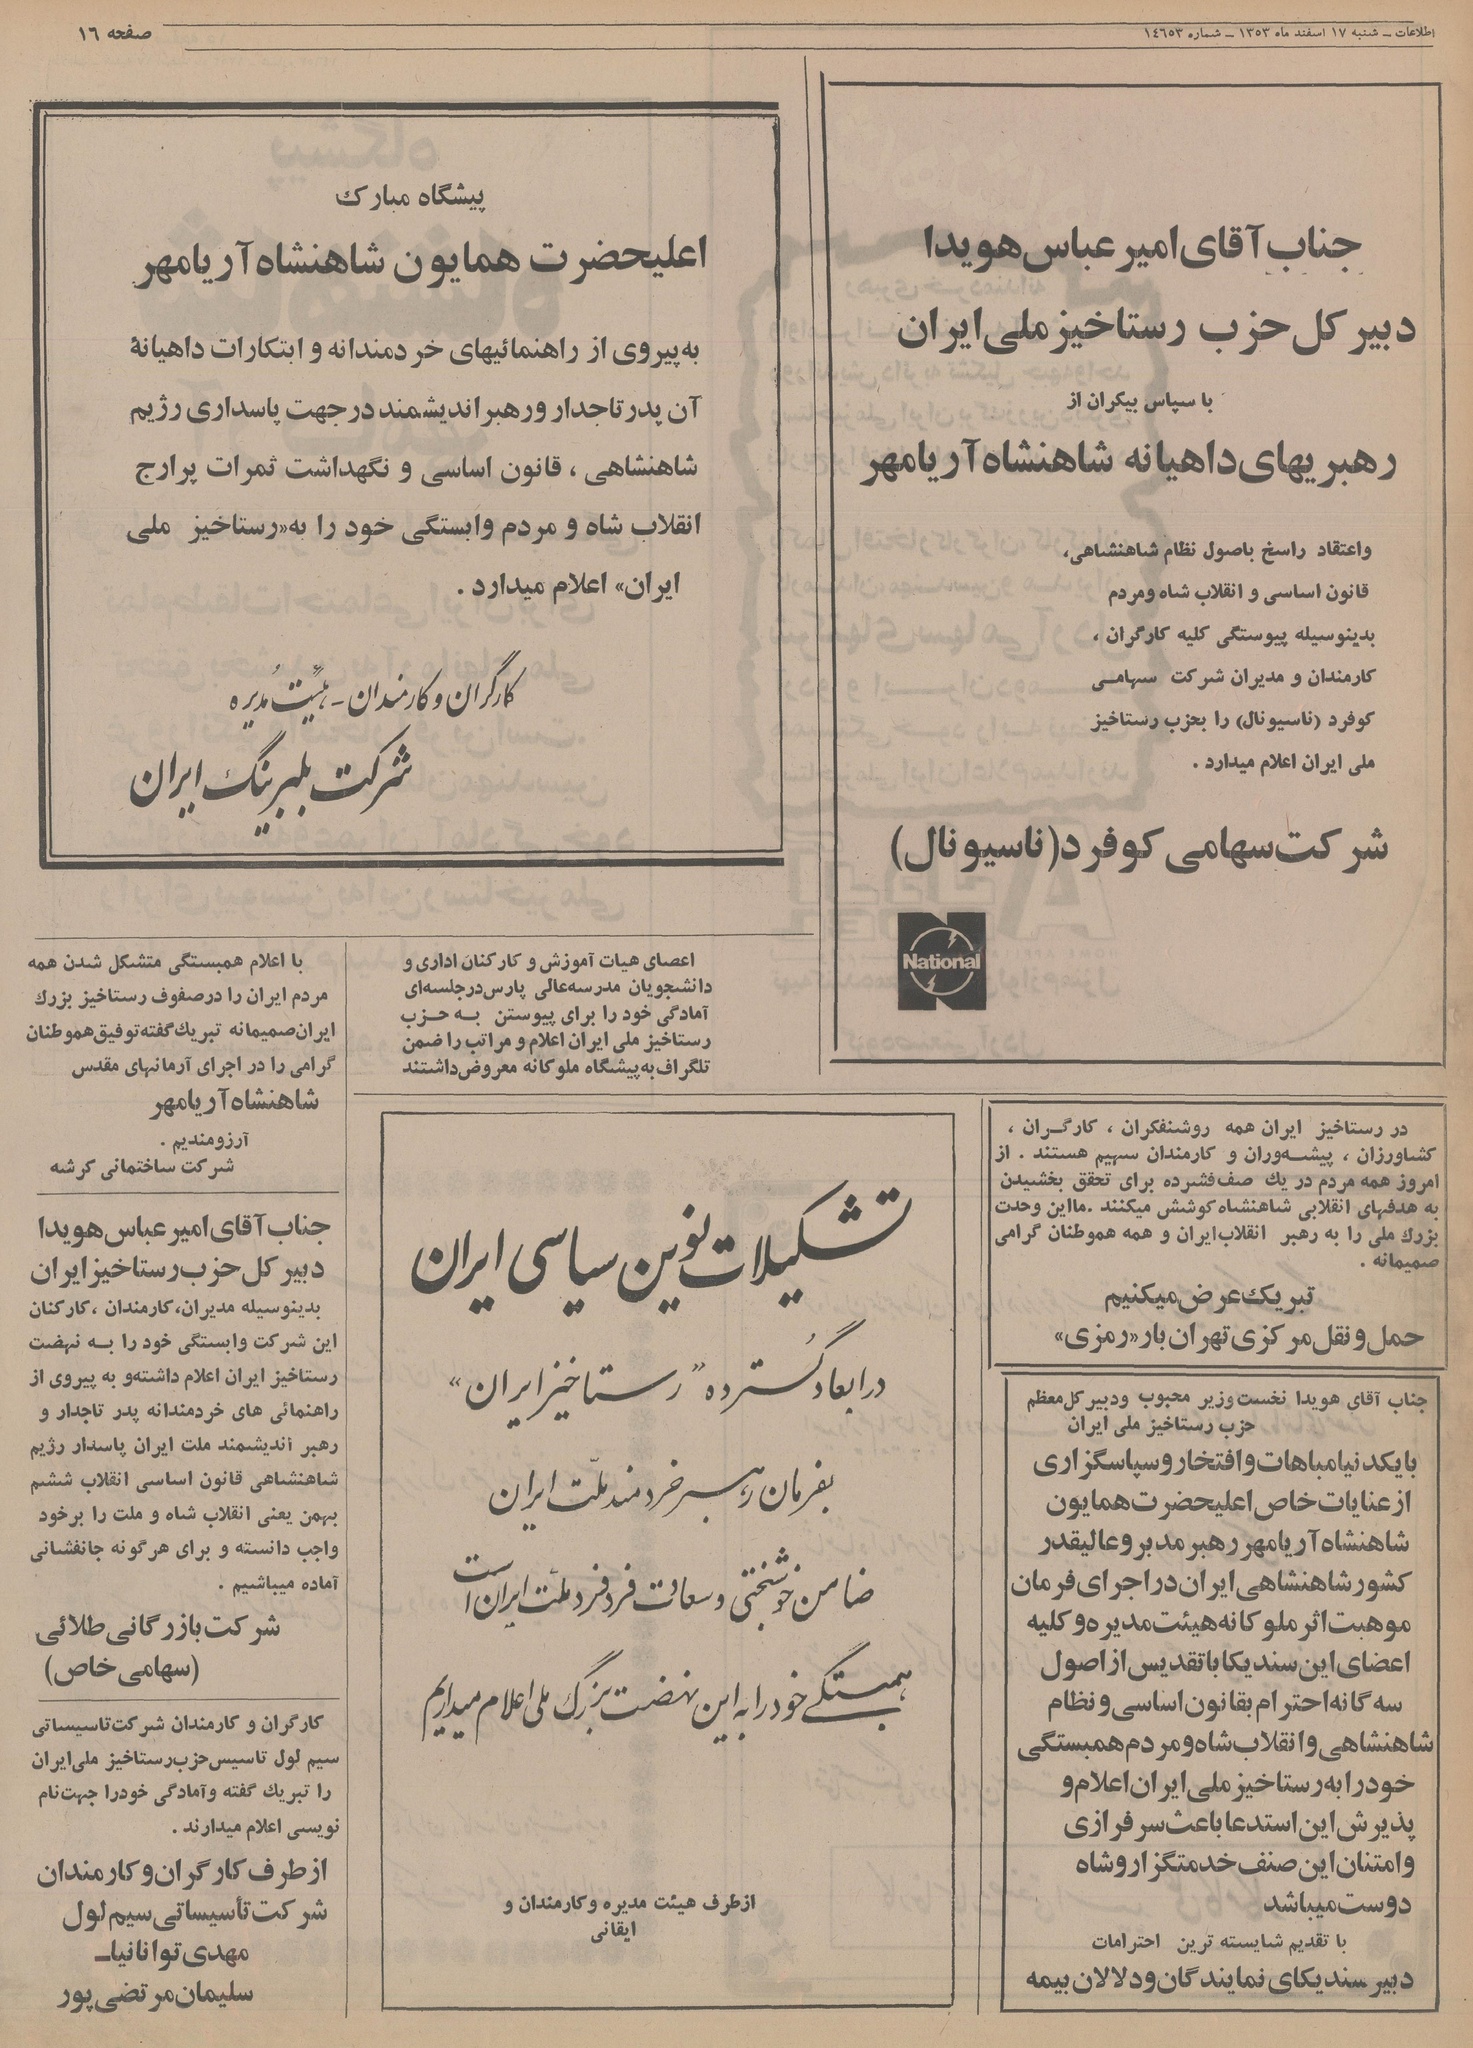 اطلاعات ــ شنبه ۱۷ اسفند ماه ۱۳۵۳ ــ شماره ۱٤٦٥۳
صفحه ۱٦
جناب آقای امیر عباس هویدا
دبیر کل حزب رستاخیز ملی ایران
با سپاس بیکران از
رهبریهای داهیانه شاهنشاه آریامهر
واعتقاد راسخ باصول نظام شاهنشاهی،
قانون اساسی و انقلاب شاه ومردم
بدینوسیله پیوستگی کلیه کارگران ،
کارمندان و مدیران شرکت سهامی
کوفرد (ناسیونال) را بحزب رستاخیز
ملی ایران اعلام میدارد .
شرکت سهامی کوفرد (ناسیونال)
National
پیشگاه مبارک
اعلیحضرت همایون شاهنشاه آریامهر
به پیروی از راهنمائیهای خردمندانه و ابتکارات داهیانهٔ
آن پدر تاجدار ورهبر اندیشمند در جهت پاسداری رژیم
شاهنشاهی ، قانون اساسی و نگهداشت ثمرات پر ارج
انقلاب شاه و مردم وابستگی خود را به «رستاخیز ملی
ایران» اعلام میدارد .
کارگران و کارمندان ـ هیئت مدیره
شرکت بلبرینگ ایران
اعضای هیات آموزش و کارکنان اداری و
دانشجویان مدرسه عالی پارس در جلسه‌ای
آمادگی خود را برای پیوستن به حزب
رستاخیز ملی ایران اعلام و مراتب را ضمن
تلگراف به پیشگاه ملوکانه معروض داشتند
با اعلام همبستگی متشکل شدن همه
مردم ایران را در صفوف رستاخیز بزرگ
ایران صمیمانه تبریک گفته توفیق هموطنان
گرامی را در اجرای آرمانهای مقدس
شاهنشاه آریامهر
آرزومندیم .
شرکت ساختمانی کرشه
در رستاخیز ایران همه روشنفکران ، کارگران ،
کشاورزان ، پیشه‌وران و کارمندان سهیم هستند . از
امروز همه مردم در یک صف فشرده برای تحقق بخشیدن
به هدفهای انقلابی شاهنشاه کوشش میکنند .ما این وحدت
بزرگ ملی را به رهبر انقلاب ایران و همه هموطنان گرامی
صمیمانه .
تبریک عرض میکنیم
حمل و نقل مرکزی تهران بار «رمزی»
جناب آقای هویدا نخست وزیر محبوب ودبیر کل معظم
حزب رستاخیز ملی ایران
با یکدنیا مباهات و افتخار و سپاسگزاری
از عنایات خاص اعلیحضرت همایون
شاهنشاه آریامهر رهبر مدبر و عالیقدر
کشور شاهنشاهی ایران در اجرای فرمان
موهبت اثر ملوکانه هیئت مدیره و کلیه
اعضای این سندیکا با تقدیس از اصول
سه گانه احترام بقانون اساسی و نظام
شاهنشاهی و انقلاب شاه و مردم همبستگی
خود را به رستاخیز ملی ایران اعلام و
پذیرش این استدعا باعث سرفرازی
و امتنان این صنف خدمتگزار و شاه
دوست میباشد
با تقدیم شایسته ترین احترامات
دبیر سندیکای نمایندگان و دلالان بیمه
تشکیلات نوین سیاسی ایران
در ابعاد گسترده «رستاخیز ایران»
بفرمان رهبر خردمند ملت ایران
ضامن خوشبختی و سعادت فرد فرد ملت ایران است
همبستگی خود را به این نهضت بزرگ ملی اعلام میداریم
از طرف هیئت مدیره و کارمندان و
ایقانی
جناب آقای امیر عباس هویدا
دبیر کل حزب رستاخیز ایران
بدینوسیله مدیران، کارمندان ، کارکنان
این شرکت وابستگی خود را به نهضت
رستاخیز ایران اعلام داشته و به پیروی از
راهنمائی های خردمندانه پدر تاجدار و
رهبر اندیشمند ملت ایران پاسدار رژیم
شاهنشاهی قانون اساسی انقلاب ششم
بهمن یعنی انقلاب شاه و ملت را برخود
واجب دانسته و برای هر گونه جانفشانی
آماده میباشیم .
شرکت بازرگانی طلائی
(سهامی خاص)
کارگران و کارمندان شرکت تاسیساتی
سیم لول تاسیس حزب رستاخیز ملی ایران
را تبریک گفته و آمادگی خود را جهت نام
نویسی اعلام میدارند .
از طرف کارگران و کارمندان
شرکت تأسیساتی سیم لول
مهدی توانانیا ــ
سلیمان مرتضی پور